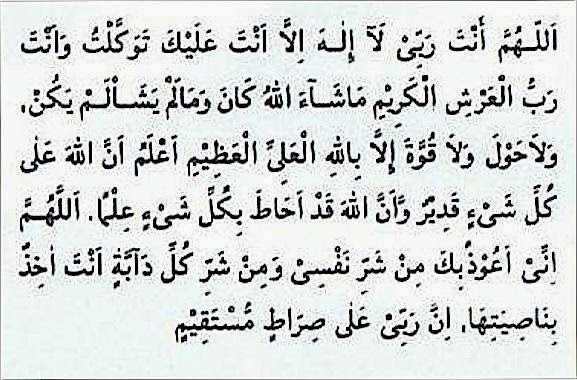 اَللّٰهُمَّ أَنْتَ رَبِّيْ لَآ إِلٰهَ اِلَّا اَنْتَ عَلَيْكَ تَوَكَّلْتُ وَاَنْتَ
رَبُّ الْعَرْشِ الْكَرِيْمِ مَاشَآءَ اللهُ كَانَ وَمَالَمْ يَشَاْلَمْ يَكُنْ،
وَلَاحَوْلَ وَلَا قُوَّةَ إِلَّا بِاللهِ الْعَلِيِّ الْعَظِيْمِ اَعْلَمُ اَنَّ اللهَ عَلٰى
كُلِّ شَيْءٍ قَدِيْرٌ وَّاَنَّ اللهَ قَدْ اَحَاطَ بِكُلِّ شَيْءٍ عِلْمًا. اَللّٰهُمَّ
اِنِّيْ اَعُوْذُبِكَ مِنْ شَرِّ نَفْسِيْ وَمِنْ شَرِّ كُلِّ دَآبَّةٍ اَنْتَ اٰخِذٌ
بِنَاصِيَتِهَا، اِنَّ رَبِّيْ عَلٰى صِرَاطٍ مُّسْتَقِيْمٍ